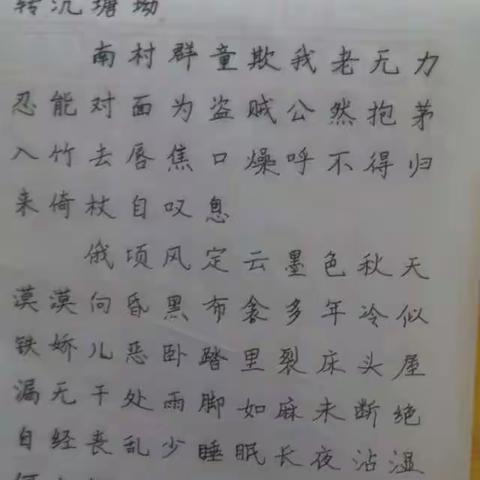 转沉塘坳
南村群童欺我老无力
忍能对面为盗贼公然抱茅
入竹去唇焦口燥呼不得归
来倚杖自叹息
俄顷风定云墨色秋天
漠漠向昏黑布衾多年冷似
铁娇儿恶卧踏里裂床头屋
漏无干处雨脚如麻未断绝
自经丧乱少睡眠长夜沾湿